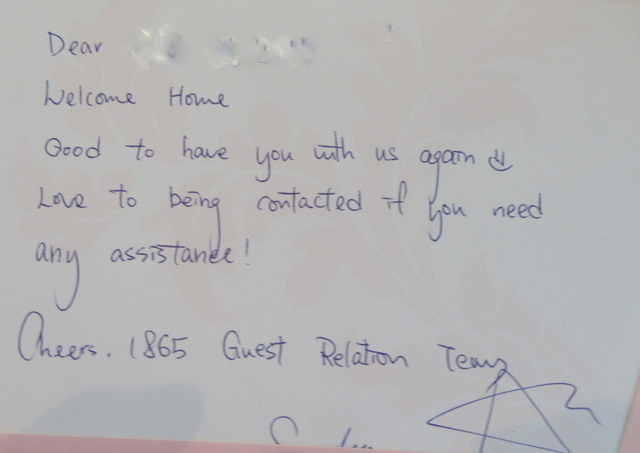 Dear
Welcome Home
Good to have you with us again
Love to being contacted if you need
any assistance!
Cheers. 1865 Guest Relation Team